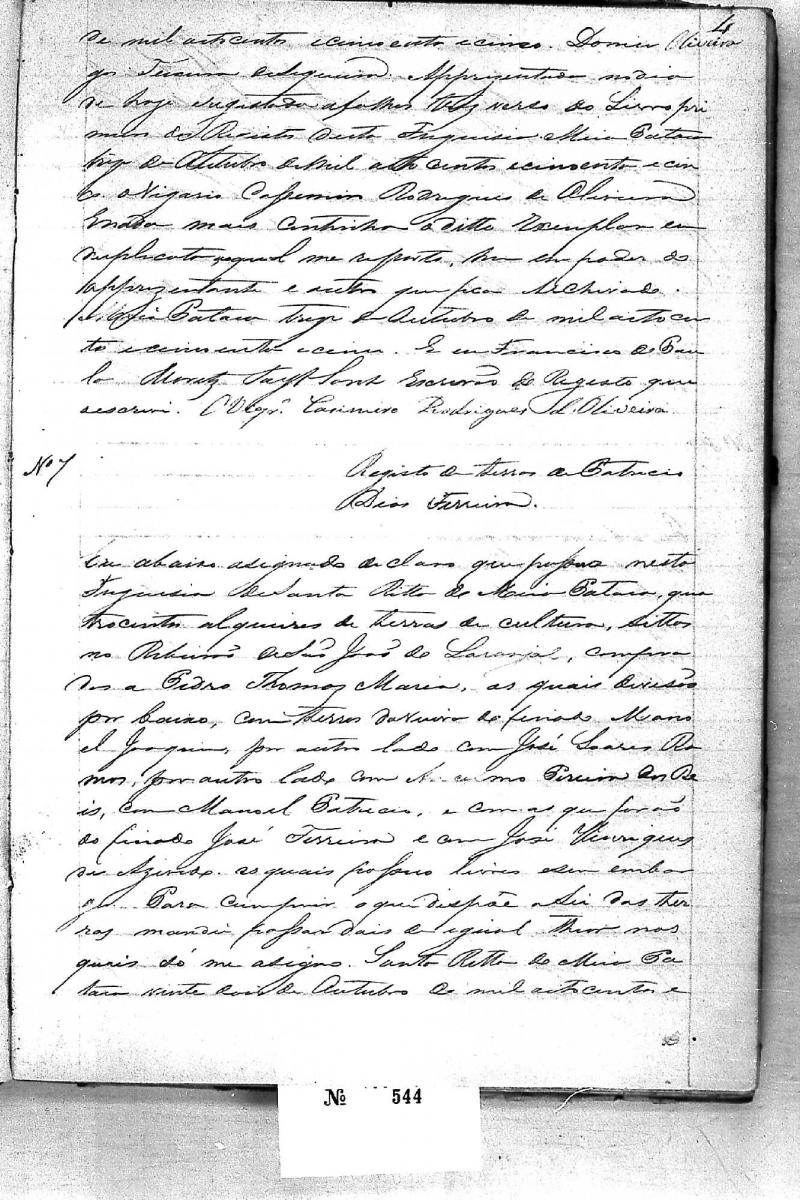 4
Oliveira
de mil oitocentos e cincoenta e cinco. Domin
gos Apprezentado no dia
de hoje e registado a folhas trez verso do Livro pri
meiro de Registo desta Freguesia Meia Pataca
treze de Outubro de mil oito centos e cincoenta e cin
co. O Vigario Cassemiro Rodrigues de Oliveira
E nada mais continha o ditto Exemplar em
duplicata o qual me reporto, em poder do
apprezentante e outro que fica Archivado.
Meia Pataca treze de Outubro de mil oitocen
to e cincoenta e cinco. E eu Francisco de Pau
la Escrivão do Registo que
o escrevi. O Vigr.º Casimiro Rodrigues d'Oliveira
Nº 7
Registo de terras de Patricio
Dias Ferreira.
Eu abaixo asignado declaro que possuo nesta
Freguesia de Santa Ritta do Meia Pataca, qua
trocentos alqueires de terras de cultura, sittos
no Ribeirão de São João do Laranjal, compra
dos a Pedro Thomaz Maria, as quais devisão
por baixo, com terras da viuva do finado Mano
el Joaquim, por outro lado com José Soares Ra
mos, por outro lado com Pereira dos Re
is, com Manoel Patricio, e com as que forão
do finado José Ferreira e com José Henriques
de Azevedo. as quais possuo livres e sem embar
go. Para cumprir o que dispõe a Lei das ter
ras mandei passar dois de igual theor nos
quais só me asigno. Santa Ritta do Meia Pa
taca vinte dois de Outubro de mil oitocentos e
Nº 544